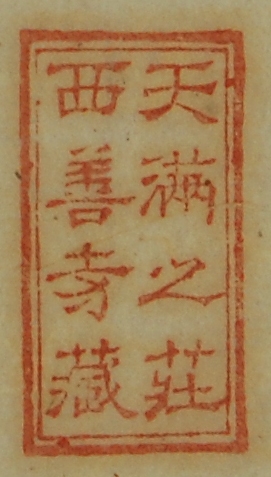 天滿之莊
西善寺藏